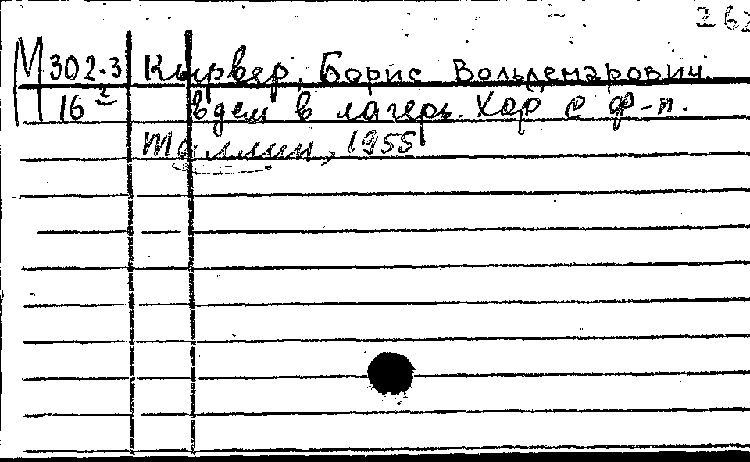 262
М 302-3 Кырвер, Борис Вольдемарович.
16² Идем в лагерь. Хор с ф-п.
Таллин, 1955